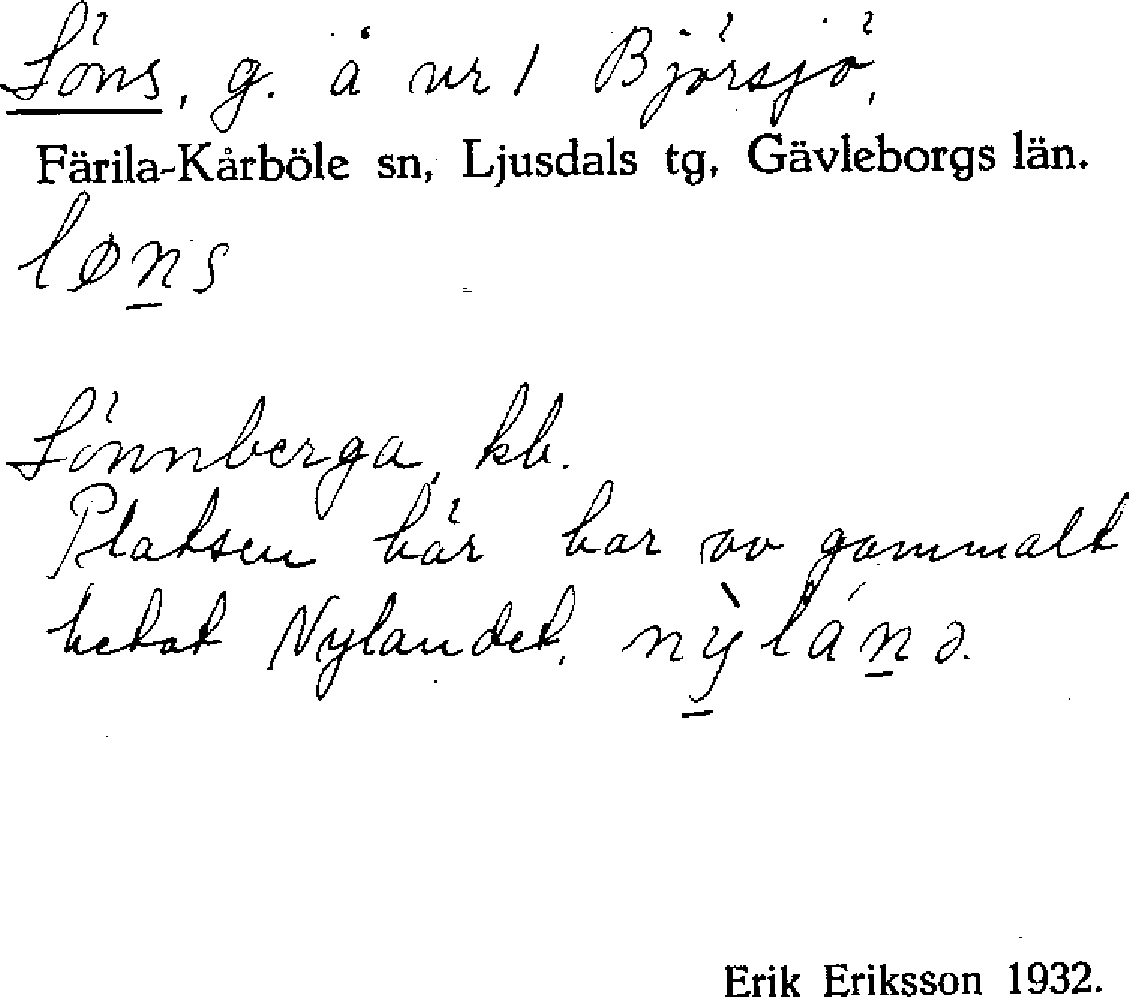 Löns, g. å nr 1 Björsjö,
Färila-Kårböle sn, Ljusdals tg, Gävleborgs län.
løn̲s
Lönnberga, kb.
Platsen här har av gammalt
hetat Nylandet. nỳ̲lán̲ə.
Erik Eriksson 1932.